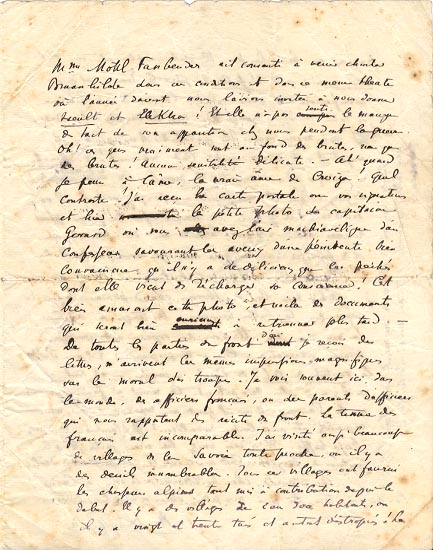 Mme Mottl Fassbender ait consenti à venir chanter
Brunnhilde dans ces conditions et dans ce même théâtre
où l'année davant nous l'avions invitée à nous donner
Iseult et Elektra ! Et elle n'a pas senti le manque
de tact de son apparition chez nous pendant la guerre
Oh! ces gens vraiment sont au fond des brutes, rien que
des brutes ! Aucune sensibilité délicate. Ah! quand
je pense à l'âme, la vraie âme de ! Quel
contraste ! J'ai reçu la carte postale avec vos signatures
et hier la petite photo du capitaine
où vous avez l'air machiavélique d'un
confesseur savourant les aveux d'une pénitente bien
convaincue qu'il n'y a de délicieux que les péchés
dont elle vient de décharger sa conscience ! C'est
très amusant cette photo, et voilà des documents
qui seront bien curieux à retrouver plus tard —
De toutes les parties du front d'où je reçois des
lettres, m'arrivent les mêmes impressions magnifiques
sur le moral des troupes. Je vois souvent ici, dans
le monde, des officiers français, ou des parents d'officiers
qui nous rapportent des récits du front. La tenue des
français est incomparable. J'ai visité aussi beaucoup
de villages de la Savoie toute proche, où il y a
des deuils innombrables. Tous ces villages ont fourni
les chasseurs alpins tout mis à contribution depuis le
début. Il y a des villages de habitants, où
il y a vingt et trente tués et autant d'estropiés. La